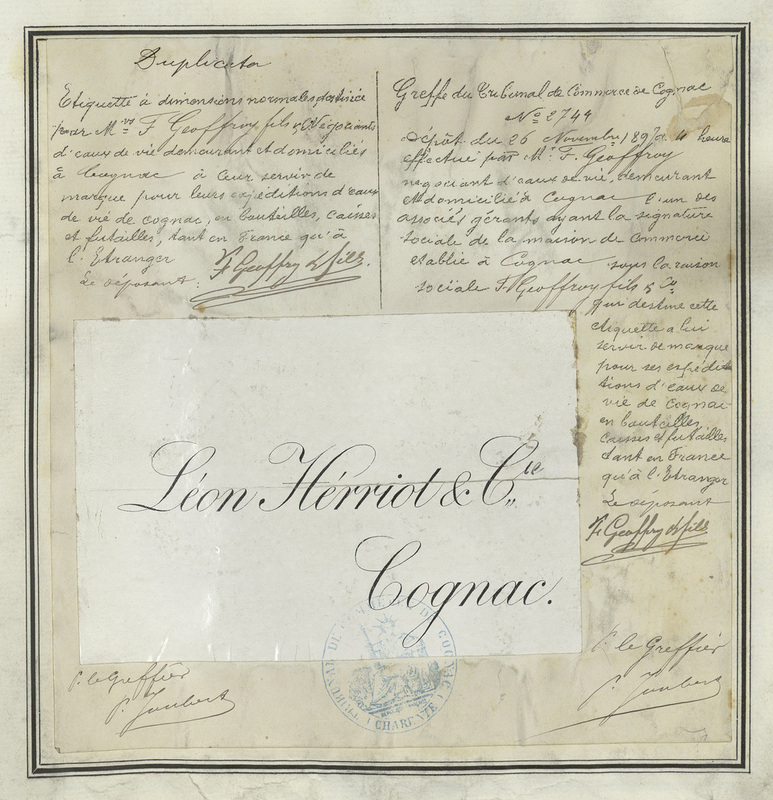 Duplicata
Etiquette à dimensions normales destinée
pour Mrs F. Geoffroy fils & Co Négociants
d'eaux de vie demeurant et domiciliés
à Cognac à leur servir de
marque pour leurs expéditions d'eaux
de vie de cognac, en bouteilles, caisses
et futailles, tant en France qu'à
l'Etranger
Le déposant: F. Geoffroy & fils.
Greffe du Tribunal de Commerce de Cognac
No 2744
Dépôt du 26 Novembre 189 à 4 heure
effectué par Mr F. Geoffroy
négociant d'eaux de vie, demeurant
et domicilié à Cognac l'un des
associés gérants ayant la signature
sociale de la maison de commerce
établie à Cognac sous la raison
sociale F. Geoffroy fils & Co
qui destine cette
étiquette a lui
servir de marque
pour ses expédi-
tions d'eaux de
vie de cognac
en bouteilles,
caisses et futailles
tant en France
qu'à l'Etranger
Le déposant
F. Geoffroy & fils
Léon Hérriot & Cie
Cognac.
TRIBUNAL DE COMMERCE DE COGNAC
(CHARENTE)
P. le Greffier
P. Joubert
P. le Greffier
P. Joubert